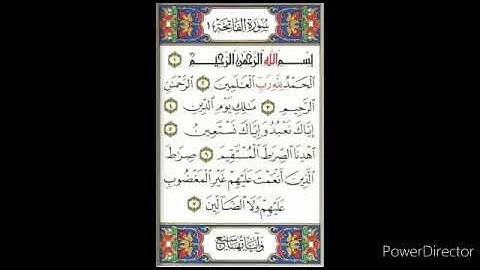 سُورَةُ الفَاتِحَةِ ١
بِسْمِ اللَّهِ الرَّحْمَٰنِ الرَّحِيمِ ١
الْحَمْدُ لِلَّهِ رَبِّ الْعَالَمِينَ ٢ الرَّحْمَٰنِ
الرَّحِيمِ ٣ مَالِكِ يَوْمِ الدِّينِ ٤
إِيَّاكَ نَعْبُدُ وَإِيَّاكَ نَسْتَعِينُ ٥
اهْدِنَا الصِّرَاطَ الْمُسْتَقِيمَ ٦ صِرَاطَ
الَّذِينَ أَنْعَمْتَ عَلَيْهِمْ غَيْرِ الْمَغْضُوبِ
عَلَيْهِمْ وَلَا الضَّالِّينَ ٧
وَآيَاتُهَا سَبْعٌ
PowerDirector